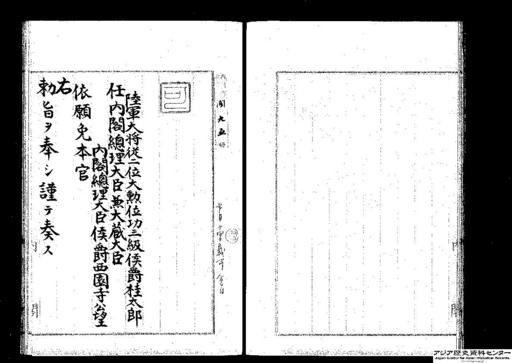 陸軍大将従二位大勲位功三級侯爵桂太郎
任内閣總理大臣兼大蔵大臣
内閣總理大臣侯爵西園寺公望
依願免本官
右
勅旨ヲ奉シ謹テ奏ス
アジア歴史資料センター
Japan Center for Asian Historical Records